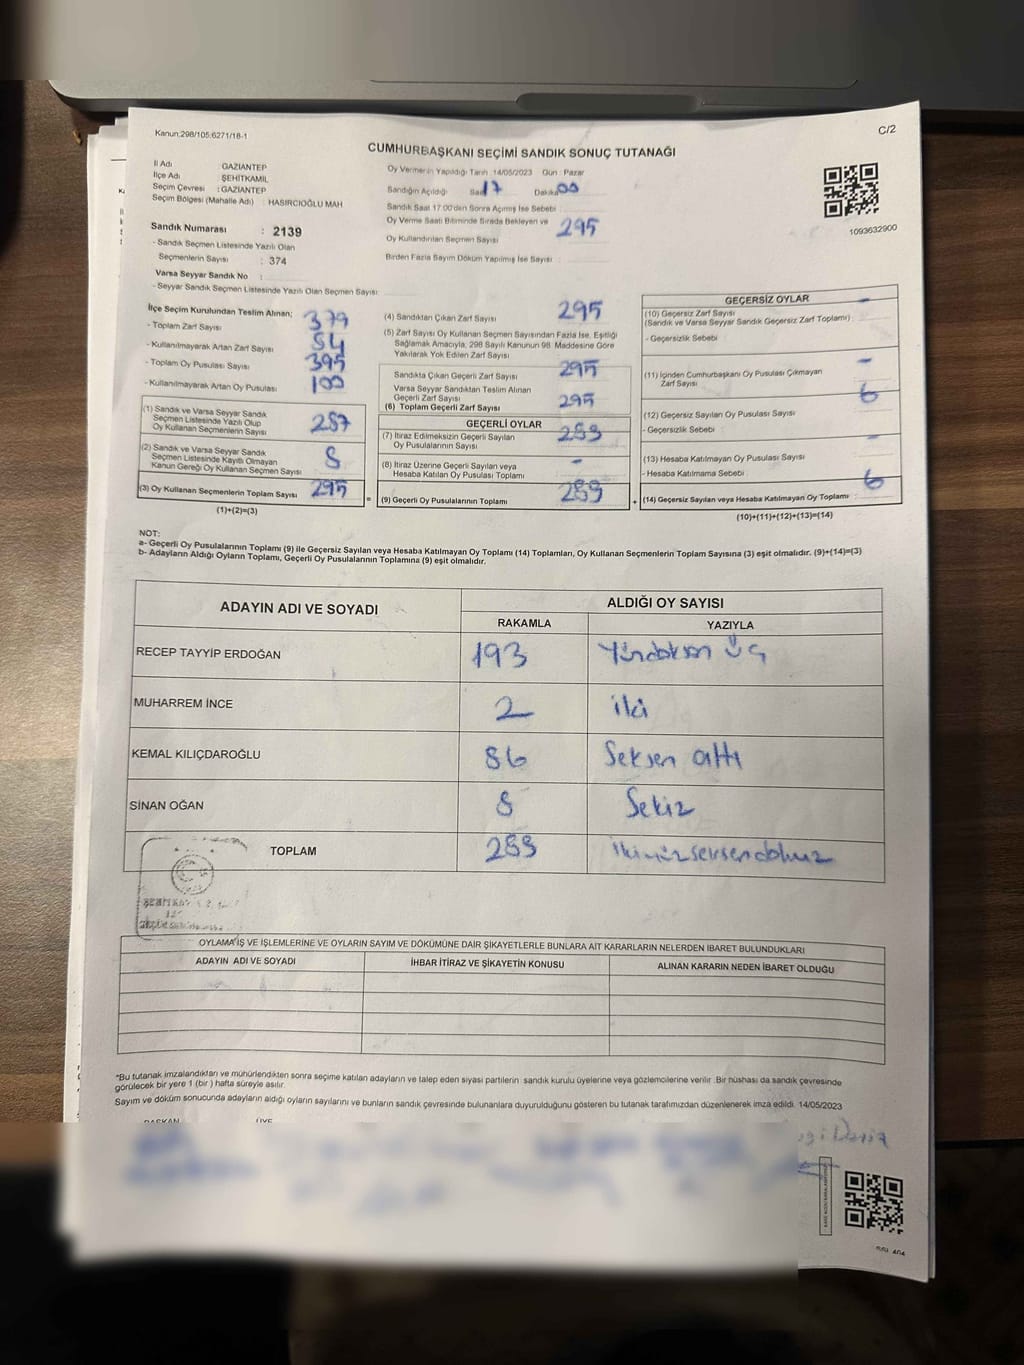 Kanun:298/105;6271/18-1
C/2
CUMHURBAŞKANI SEÇİMİ SANDIK SONUÇ TUTANAĞI
İl Adı : GAZİANTEP
İlçe Adı : ŞEHİTKAMİL
Seçim Çevresi : GAZİANTEP
Seçim Bölgesi (Mahalle Adı) : HASIRCIOĞLU MAH
Sandık Numarası : 2139
- Sandık Seçmen Listesinde Yazılı Olan
Seçmenlerin Sayısı : 374
Varsa Seyyar Sandık No :
- Seyyar Sandık Seçmen Listesinde Yazılı Olan Seçmen Sayısı:
Oy Vermenin Yapıldığı Tarih :14/05/2023 Gün : Pazar
Sandığın Açıldığı Saat 17 Dakika 00
Sandık Saat 17:00'den Sonra Açılmış İse Sebebi :
Oy Verme Saati Bitiminde Sırada Bekleyen ve
Oy Kullandırılan Seçmen Sayısı 295
Birden Fazla Sayım Döküm Yapılmış İse Sayısı :
1093632900
İlçe Seçim Kurulundan Teslim Alınan;
- Toplam Zarf Sayısı 379
- Kullanılmayarak Artan Zarf Sayısı 84
- Toplam Oy Pusulası Sayısı 395
- Kullanılmayarak Artan Oy Pusulası 100
(1) Sandık ve Varsa Seyyar Sandık
Seçmen Listesinde Yazılı Olup
Oy Kullanan Seçmenlerin Sayısı 287
(2) Sandık ve Varsa Seyyar Sandık
Seçmen Listesinde Kayıtlı Olmayan
Kanun Gereği Oy Kullanan Seçmen Sayısı 8
(3) Oy Kullanan Seçmenlerin Toplam Sayısı 295
(1)+(2)=(3)
(4) Sandıktan Çıkan Zarf Sayısı 295
(5) Zarf Sayısı Oy Kullanan Seçmen Sayısından Fazla İse, Eşitliği
Sağlamak Amacıyla, 298 Sayılı Kanunun 98. Maddesine Göre
Yakılarak Yok Edilen Zarf Sayısı
Sandıkta Çıkan Geçerli Zarf Sayısı 295
Varsa Seyyar Sandıktan Teslim Alınan
Geçerli Zarf Sayısı
(6) Toplam Geçerli Zarf Sayısı 295
GEÇERLİ OYLAR
(7) İtiraz Edilmeksizin Geçerli Sayılan
Oy Pusulalarının Sayısı 289
(8) İtiraz Üzerine Geçerli Sayılan veya
Hesaba Katılan Oy Pusulası Toplamı -
= (9) Geçerli Oy Pusulalarının Toplamı 289
GEÇERSİZ OYLAR
(10) Geçersiz Zarf Sayısı -
(Sandık ve Varsa Seyyar Sandık Geçersiz Zarf Toplamı) :
- Geçersizlik Sebebi :
(11) İçinden Cumhurbaşkanı Oy Pusulası Çıkmayan
Zarf Sayısı -
(12) Geçersiz Sayılan Oy Pusulası Sayısı 6
- Geçersizlik Sebebi :
(13) Hesaba Katılmayan Oy Pusulası Sayısı -
- Hesaba Katılmama Sebebi :
+ (14) Geçersiz Sayılan veya Hesaba Katılmayan Oy Toplamı : 6
(10)+(11)+(12)+(13)=(14)
NOT:
a- Geçerli Oy Pusulalarının Toplamı (9) ile Geçersiz Sayılan veya Hesaba Katılmayan Oy Toplamı (14) Toplamları, Oy Kullanan Seçmenlerin Toplam Sayısına (3) eşit olmalıdır. (9)+(14)=(3)
b- Adayların Aldığı Oyların Toplamı, Geçerli Oy Pusulalarının Toplamına (9) eşit olmalıdır.
ADAYIN ADI VE SOYADI ALDIĞI OY SAYISI
RAKAMLA YAZIYLA
RECEP TAYYİP ERDOĞAN 193 Yüzdoksan üç
MUHARREM İNCE 2 iki
KEMAL KILIÇDAROĞLU 86 Seksen altı
SİNAN OĞAN 8 Sekiz
TOPLAM 289 ikiyüzseksendokuz
OYLAMA İŞ VE İŞLEMLERİNE VE OYLARIN SAYIM VE DÖKÜMÜNE DAİR ŞİKAYETLERLE BUNLARA AİT KARARLARIN NELERDEN İBARET BULUNDUKLARI
ADAYIN ADI VE SOYADI İHBAR İTİRAZ VE ŞİKAYETİN KONUSU ALINAN KARARIN NEDEN İBARET OLDUĞU
*Bu tutanak imzalandıktan ve mühürlendikten sonra seçime katılan adayların ve talep eden siyasi partilerin sandık kurulu üyelerine veya gözlemcilerine verilir. Bir nüshası da sandık çevresinde
görülecek bir yere 1 (bir) hafta süreyle asılır.
Sayım ve döküm sonucunda adayların aldığı oyların sayılarını ve bunların sandık çevresinde bulunanlara duyurulduğunu gösteren bu tutanak tarafımızdan düzenlenerek imza edildi. 14/05/2023
BAŞKAN ÜYE